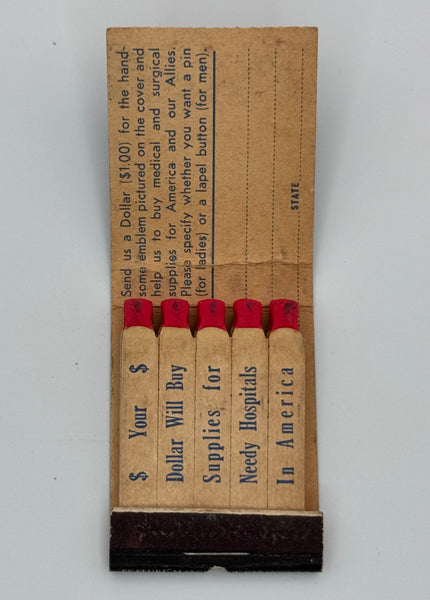 Send us a Dollar ($1.00) for the hand-
some emblem pictured on the cover and
help us to buy medical and surgical
supplies for America and our Allies.
Please specify whether you want a pin
(for ladies) or a lapel button (for men).
STATE
$ Your $
Dollar Will Buy
Supplies for
Needy Hospitals
In America